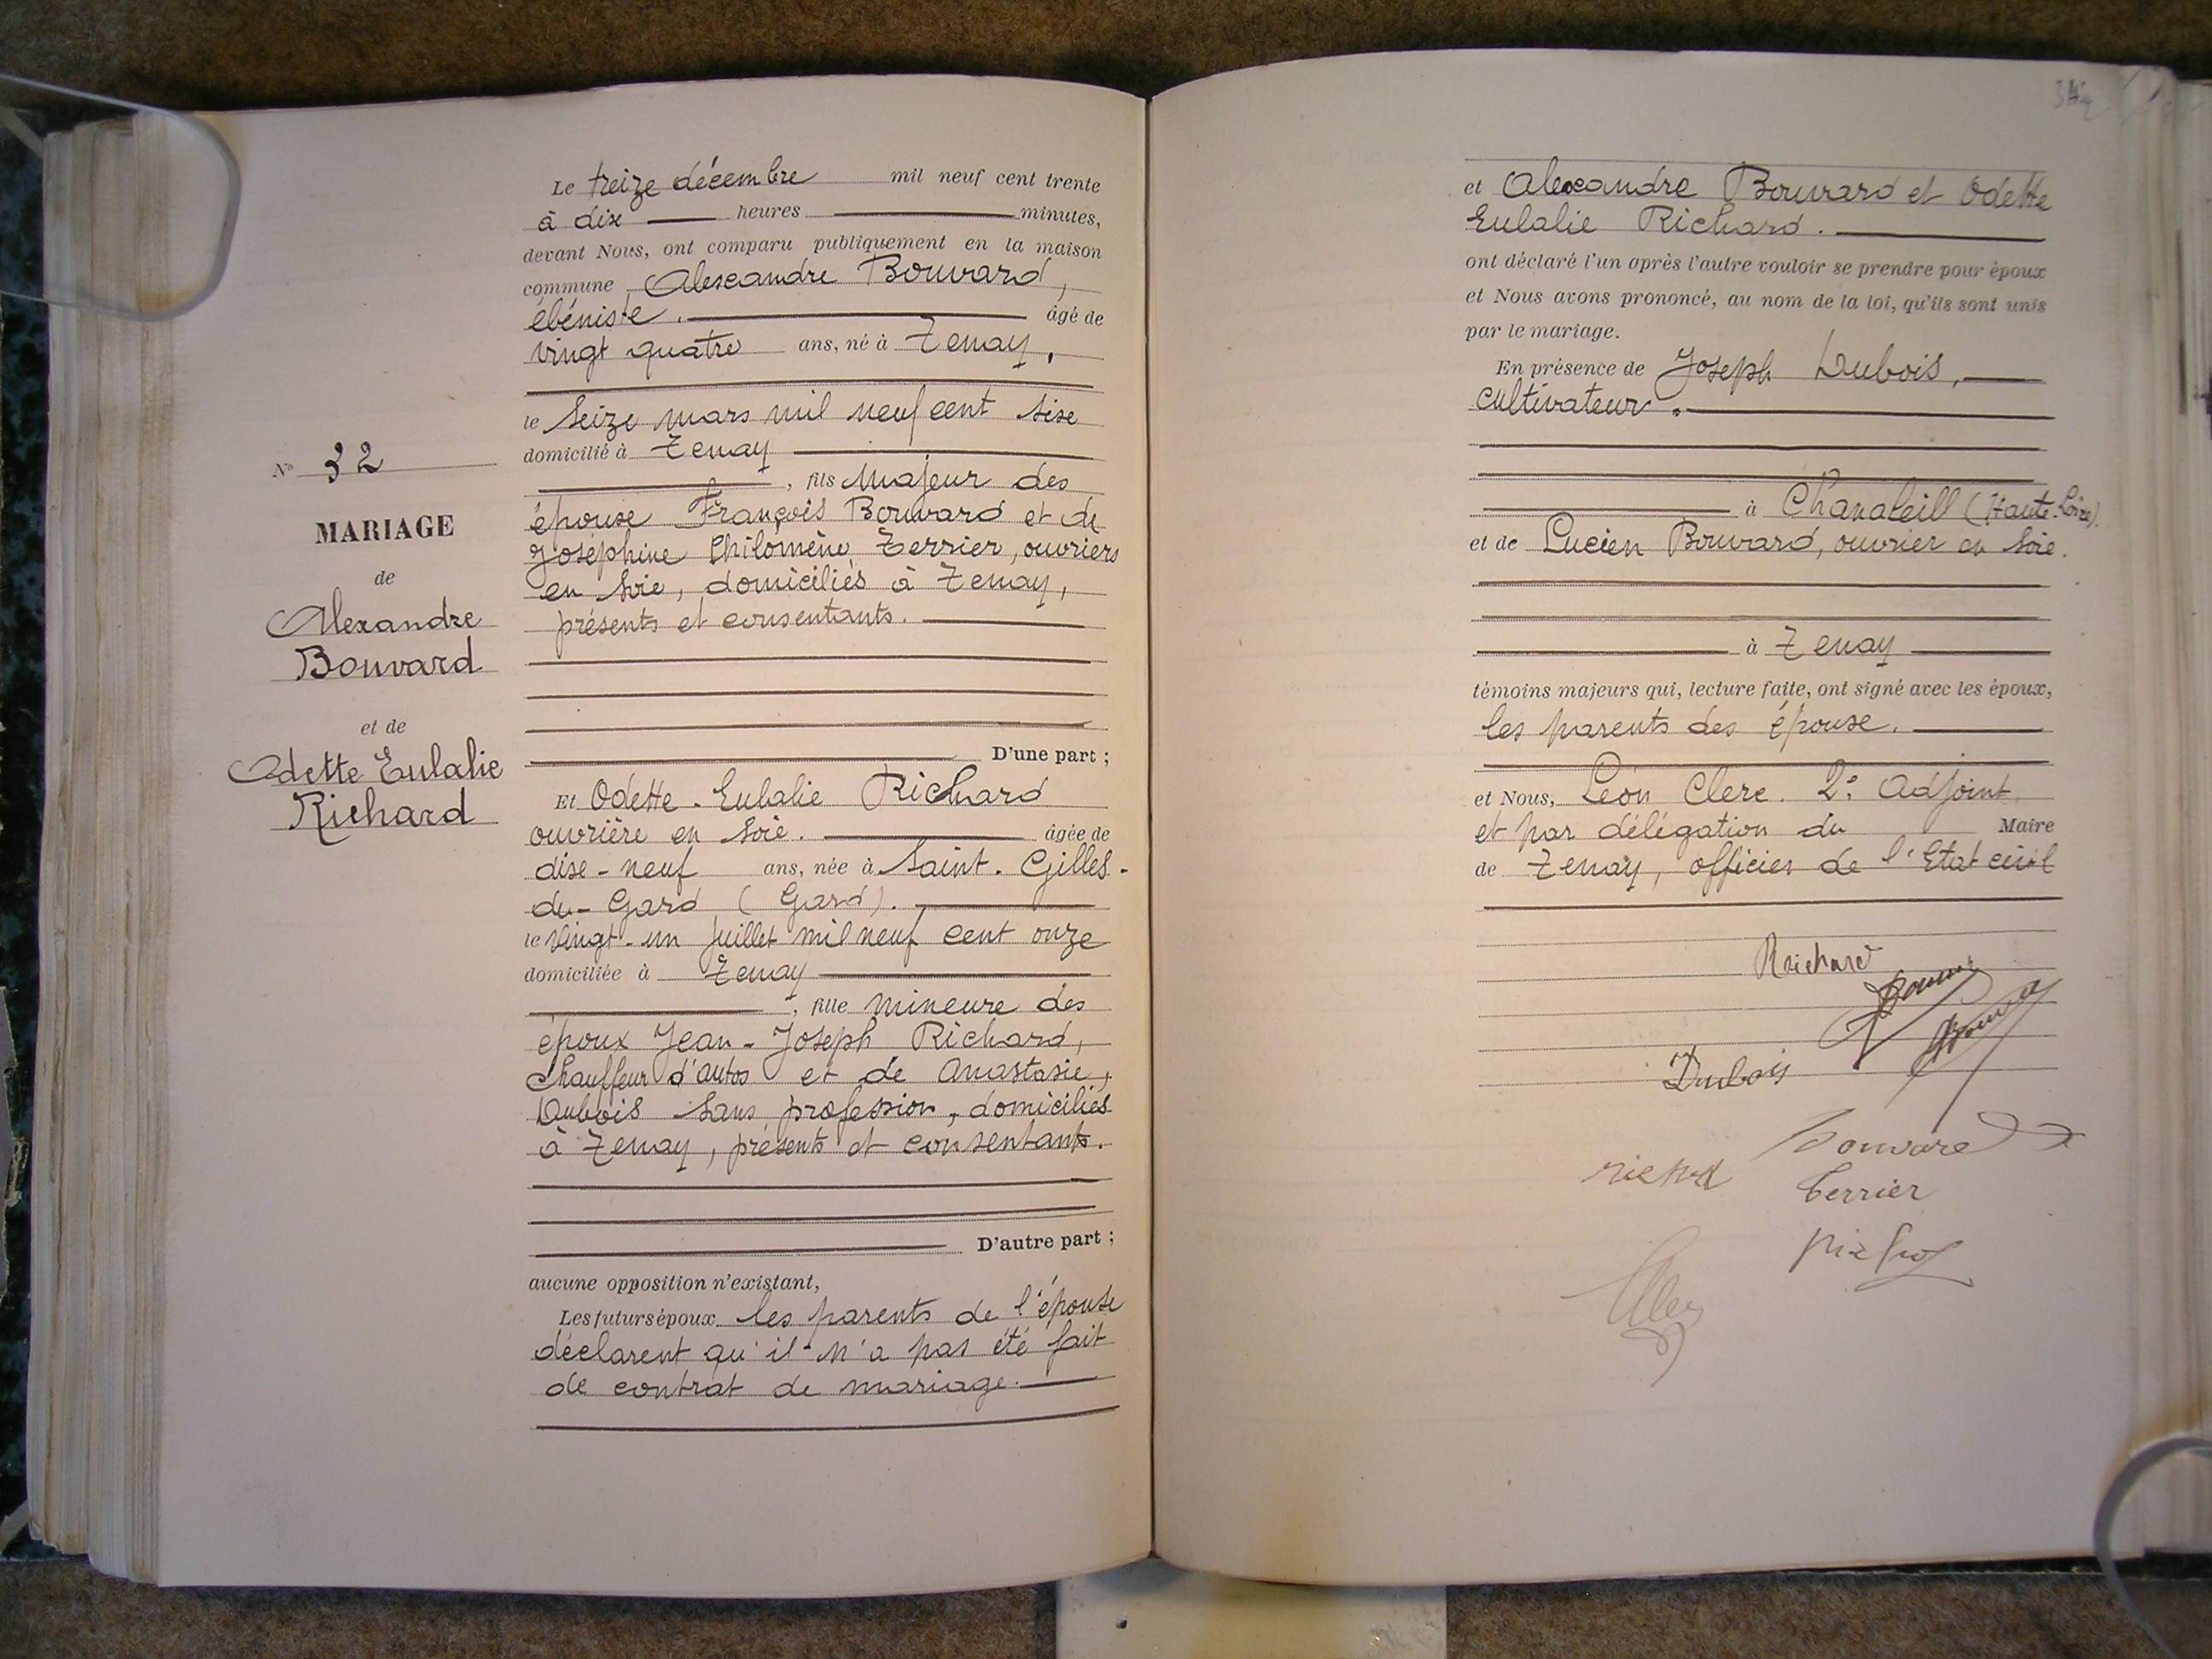 Nº 32
MARIAGE
de
Alexandre
Bouvard
et de
Odette Eulalie
Richard
Le treize décembre mil neuf cent trente
à dix heures minutes,
devant Nous, ont comparu publiquement en la maison
commune Alexandre Bouvard,
ébéniste. âgé de
vingt quatre ans, né à Tenay,
le seize mars mil neuf cent sixe
domicilié à Tenay
, fils majeur des
épouse François Bouvard et de
Joséphine Philomène Terrier, ouvriers
en soie, domiciliés à Tenay,
présents et consentants.
D'une part ;
Et Odette-Eulalie Richard
ouvrière en soie. âgée de
dixe-neuf ans, née à Saint-Gilles-
du-Gard (Gard).
le vingt-un juillet mil neuf cent onze
domiciliée à Tenay
, fille mineure des
époux Jean-Joseph Richard,
chauffeur d'autos et de Anastasie,
Dubois sans profession, domiciliés
à Tenay, présents et consentants.
D'autre part ;
aucune opposition n'existant,
Les futurs époux les parents de l'épouse
déclarent qu'il n'a pas été fait
de contrat de mariage.
et Alexandre Bouvard et Odette
Eulalie Richard.
ont déclaré l'un après l'autre vouloir se prendre pour époux
et Nous avons prononcé, au nom de la loi, qu'ils sont unis
par le mariage.
En présence de Joseph Dubois,
cultivateur.
à Chanaleill (Haute-Loire).
et de Lucien Bouvard, ouvrier en soie.
à Tenay
témoins majeurs qui, lecture faite, ont signé avec les époux,
les parents des épouse.
et Nous, Léon Clerc. 2e Adjoint
et par délégation du Maire
de Tenay, officier de l'Etat civil
Richard
Dubois
Bouvard
Terrier